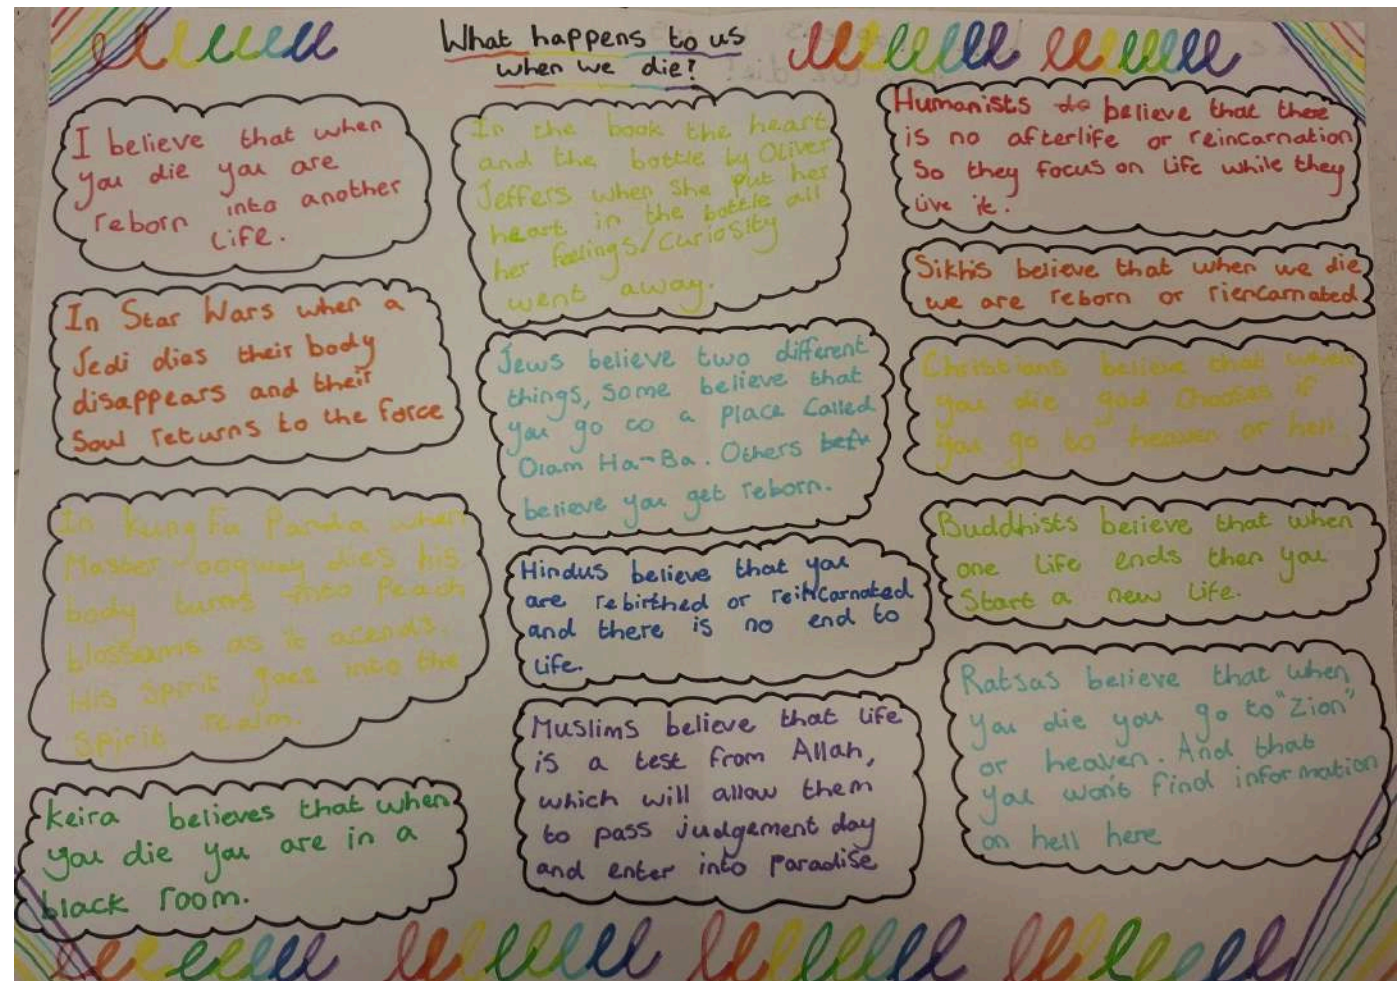 What happens to us
when we die?
I believe that when
you die you are
reborn into another
life.
In Star Wars when a
Jedi dies their body
disappears and their
Soul returns to the force
In Kung Fu Panda when
Master oogway dies his
body turns into Peach
blossoms as it acends.
His Spirit goes into the
Spirit realm.
Keira believes that when
you die you are in a
black room.
In the book the heart
and the bottle by Oliver
Jeffers when she put her
heart in the bottle all
her feelings/Curiosity
went away.
Jews believe two different
things, some believe that
you go to a place called
Olam Ha-Ba. Others befu
believe you get reborn.
Hindus believe that you
are rebirthed or reincarnated
and there is no end to
life.
Muslims believe that life
is a test from Allah,
which will allow them
to pass judgement day
and enter into paradise
Humanists do believe that there
is no afterlife or reincarnation
So they focus on life while they
live it.
Sikhis believe that when we die
we are reborn or riencarnated
Christians believe that when
you die god Chooses if
you go to heaven or hell.
Buddhists believe that when
one life ends then you
Start a new life.
Ratsas believe that when
you die you go to "Zion"
or heaven. And that
you won't find information
on hell here